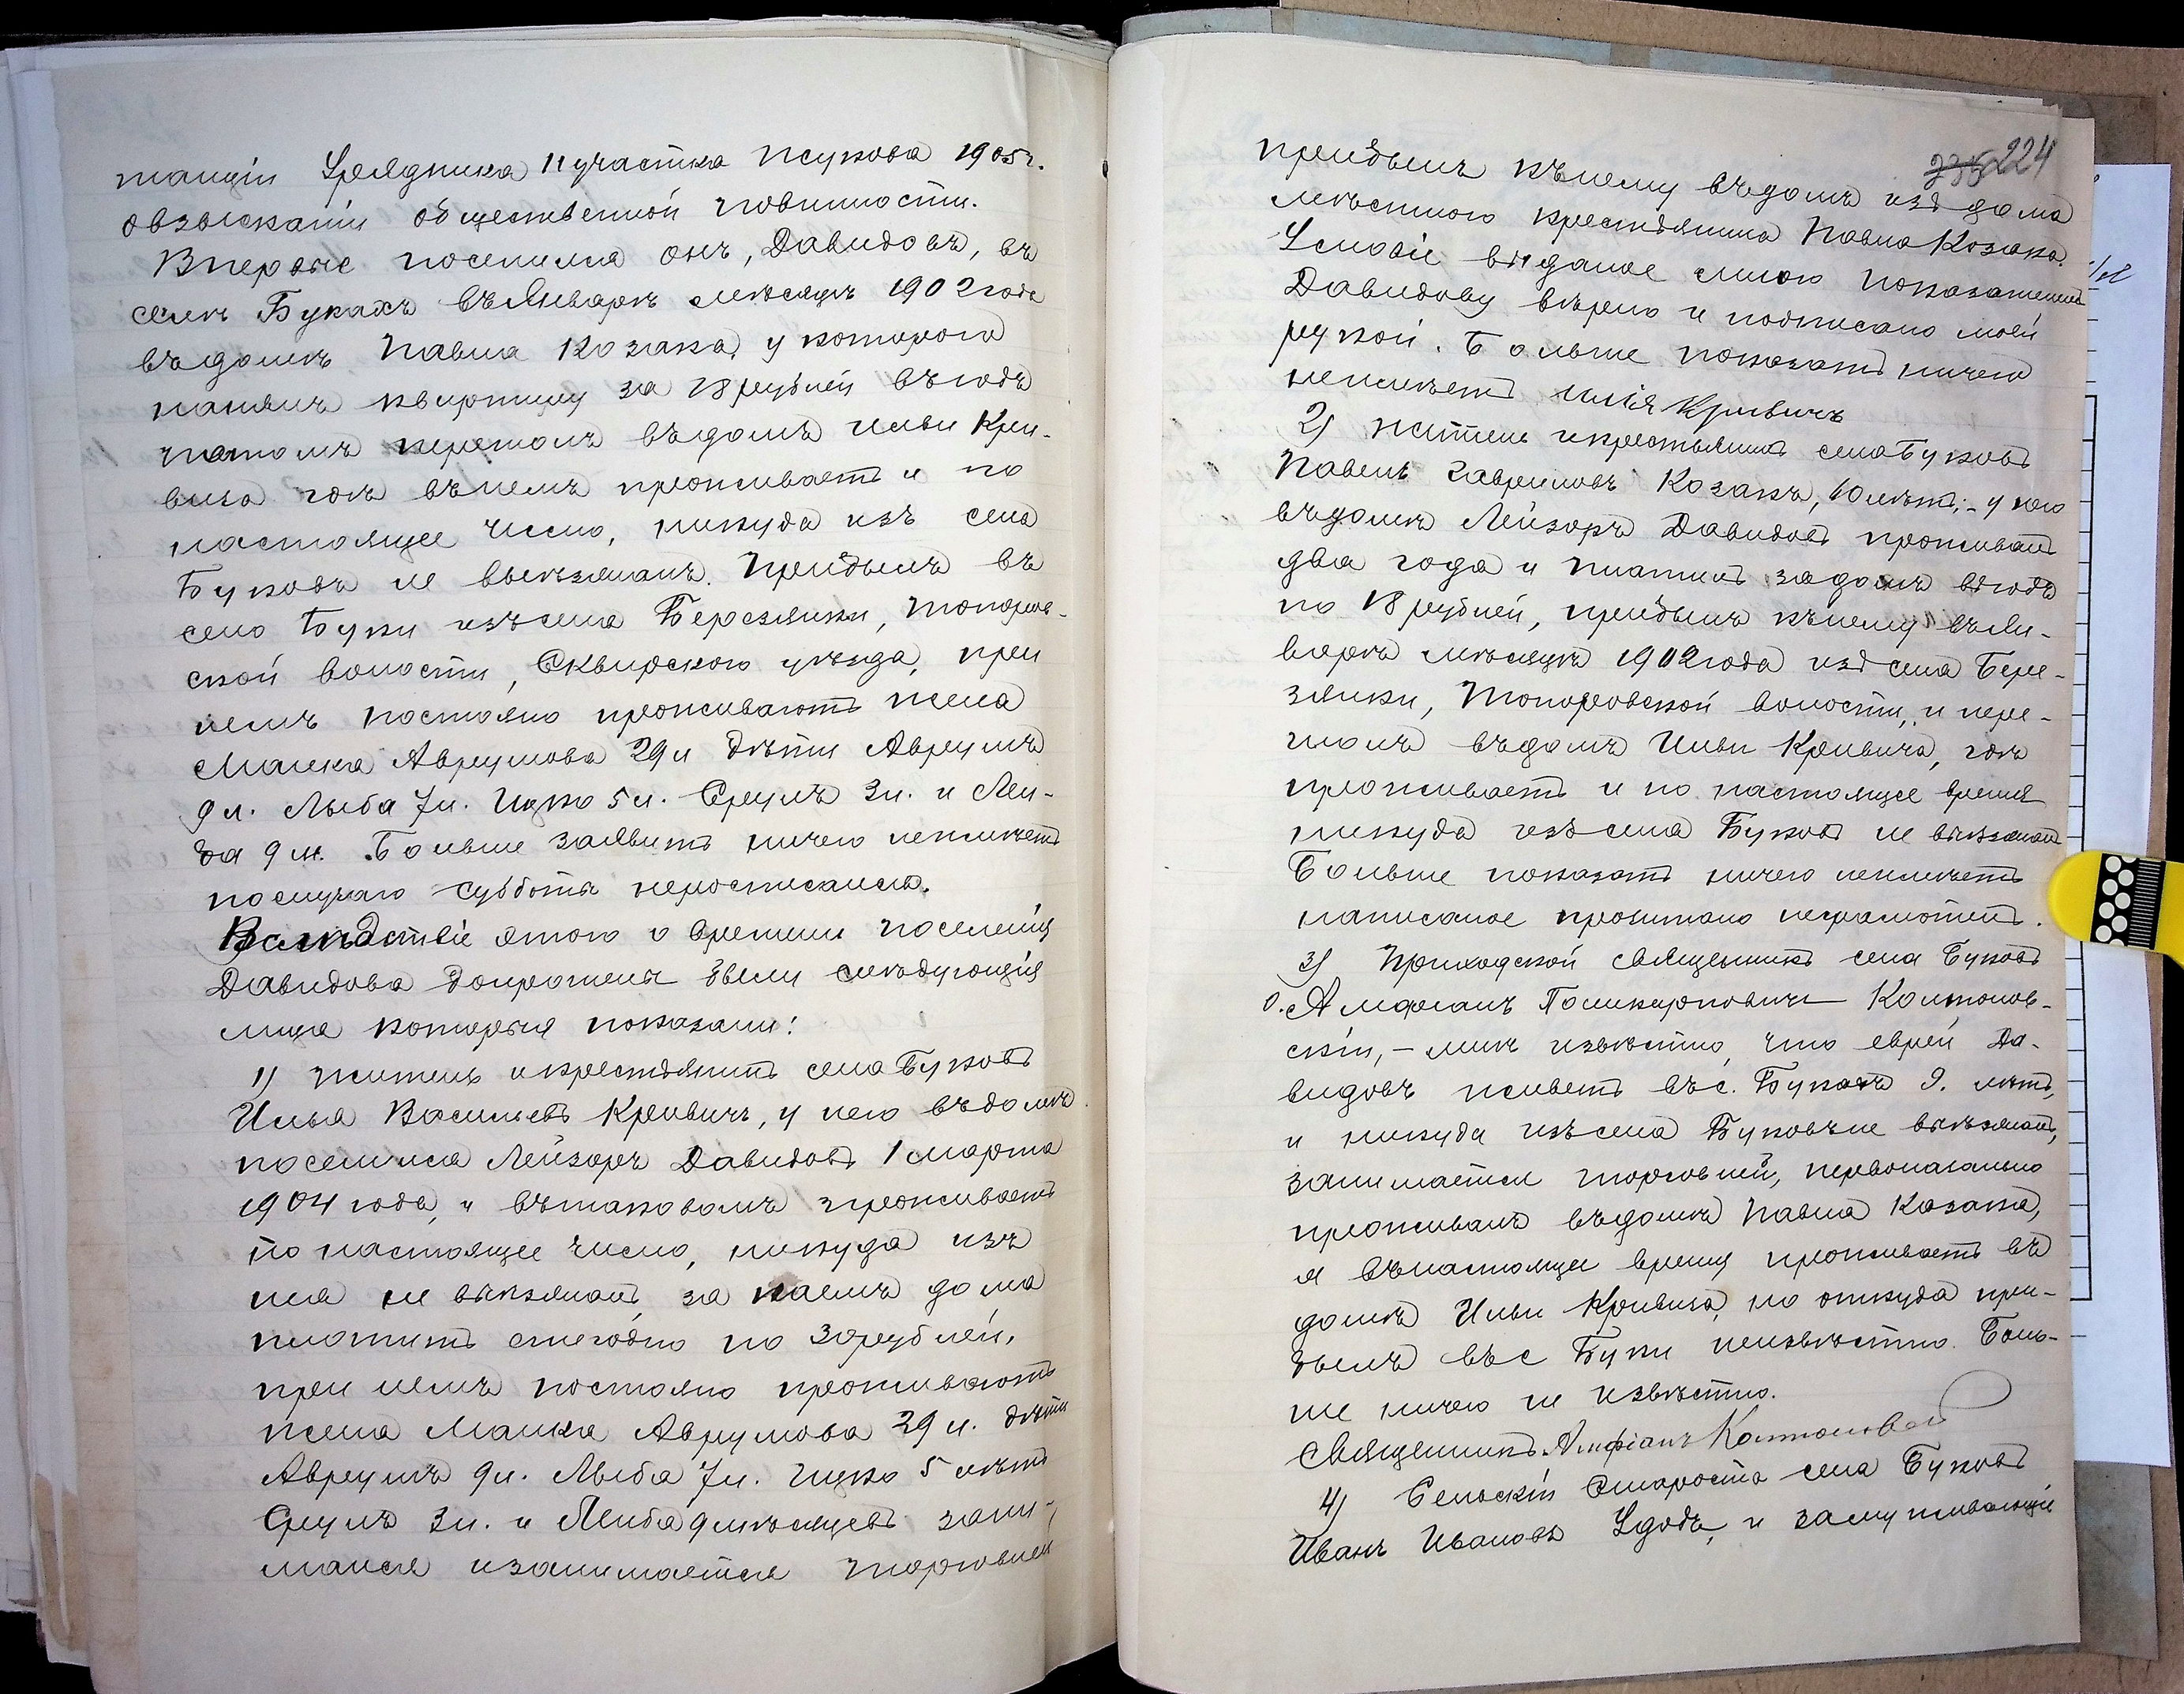 танціи Урядника 11 участка Жукова 1905 г.
овзысканіи общественной повинности.
Впервые поселился онъ, Давидовъ, въ
селѣ Букахъ въ Январѣ мѣсяцѣ 1902 года
въ домѣ Павла Козака, у котораго
нанялъ квартиру за 18 рублей въ годъ
потомъ перешолъ въ домъ Ильи Кри-
вича гдѣ въ немъ проживаетъ и по
настоящее число, никуда изъ села
Буковъ не выезжалъ. Прибылъ въ
село Буки изъ села Березянки, Топоров-
ской волости, Сквирскаго уѣзда, при
немъ постояно проживаютъ жена
Малка Аврумова 29 л дѣти Аврумъ
9 л. Лыба 7 л. Ицко 5 л. Сруль 3 л. и Лей-
ба 9 м. Больше заявить ничего неимѣетъ
послучаю субботы неросписался.
Вслѣдствіе этого о времени поселенія
Давидова допрошены были слѣдующія
лица которыя показали:
1) Житель икрестьянинъ села Буковъ
Илья Васильевъ Кривичъ, у него въ домѣ
поселился Лейзоръ Давидовъ 1 марта
1904 года, и въ таковомъ проживаетъ
по настоящее число, никуда изъ
нея не выезжалъ, за наемъ дома
платитъ ежегодно по 30 рублей,
при немъ постояно проживаютъ
жена Малка Аврумова 29 л. дѣти
Аврумъ 9 л. Лыба 7 л. Ицко 5 лѣтъ
Сруль 3 л. и Лейба 9 мѣсяцевъ зани-
мался изанимается торговлей
224
прибылъ къ нему въ домъ изъ дома
мѣстного крестьянина Павла Козака.
Условіе выданое мною показателемъ
Давидову вѣрно и подписано моей
рукой. Больше показать ничего
неимѣетъ Илія Кривичъ
2) Житель икрестьянинъ села Буковъ
Павелъ Гавриловъ Козакъ, 60 лѣтъ; - у него
въ домѣ Лейзоръ Давидовъ проживалъ
два года и платилъ за домъ въ годъ
по 18 рублей, прибылъ къ нему въ Ян-
варѣ мѣсяцѣ 1902 года изъ села Бере-
зянки, Топоровской волости, и пере-
шолъ въ домъ Ильи Кривича, гдѣ
проживаетъ и по настоящее время
никуда изъ села Буковъ не выезжалъ
Больше показать ничего неимѣетъ
написаное прочитано неграмотенъ.
3) Приходской священникъ села Буковъ
о. Алфіанъ Поликарповичъ Колтонов-
скій, - мнѣ извѣстно, что еврей Да-
видовъ живетъ въ с. Букахъ 9. лѣтъ,
и никуда изъ села Буковъ не выѣзжалъ,
занимается торговлей, первоначально
проживалъ въ домѣ Павла Козака,
а въ настоящее время проживаетъ въ
домѣ Ильи Кривича, но откуда при-
былъ въ с Буки неизвѣстно. Боль-
ше ничего не извѣстно.
Священникъ Алфіанъ
4) Сельскій Староста села Буковъ
Иванъ Ивановъ Удодъ, и заслуживающіе